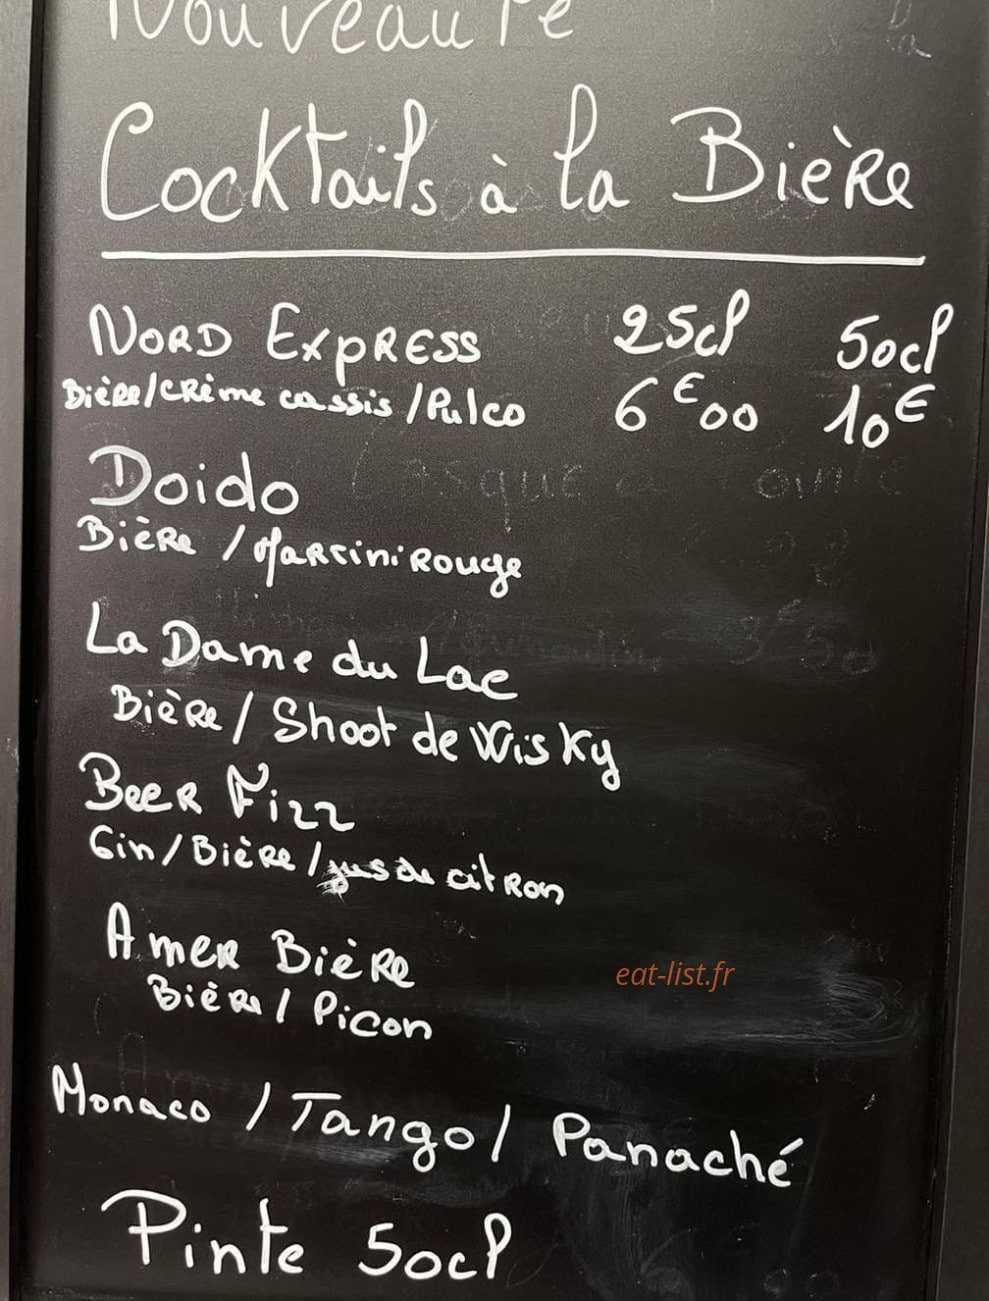 Nouveauté
Cocktails à la Bière
NORD EXPRESS 25cl 50cl
Bière/crème cassis/Pulco 6€00 10€
Doido
Bière / Martini Rouge
La Dame du Lac
Bière / Shoot de Wisky
Beer Fizz
Gin/Bière/jus de citron
Amer Bière
Bière / Picon
eat-list.fr
Monaco / Tango / Panaché
Pinte 50cl